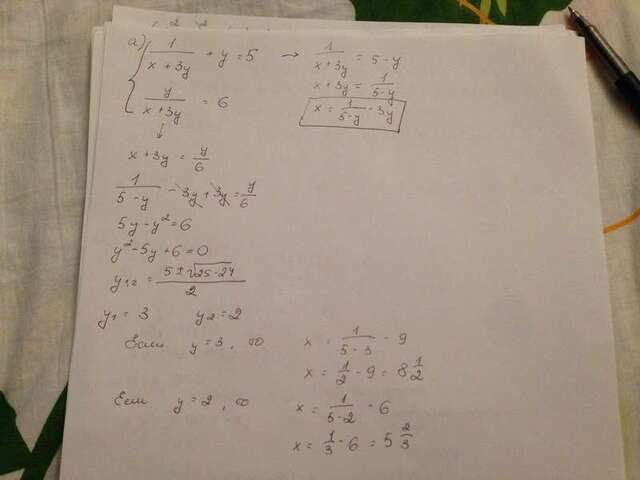 а) { 1/(x + 3y) + y = 5 → 1/(x+3y) = 5 - y
x + 3y = 1/(5-y)
y/(x+3y) = 6
x = 1/(5-y) - 3y
↓
x + 3y = y/6
1/(5-y) - 3y + 3y = y/6
5y - y² = 6
y² - 5y + 6 = 0
y₁,₂ = (5 ± √25-24)/2
y₁ = 3 y₂ = 2
Если y = 3, то x = 1/(5-3) - 9
x = 1/2 - 9 = 8 1/2
Если y = 2, то x = 1/(5-2) - 6
x = 1/3 - 6 = 5 2/3